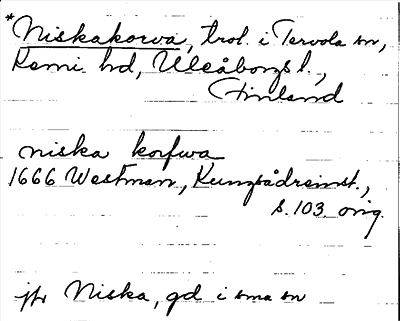 *Niskakorva, trol. i Tervola sn,
Kemi hd, Uleåborgs l.,
Finland
niska korfwa
1666 Westman, Kungsådreinst.,
s. 103. orig.
jfr Niska, gd i sma sn